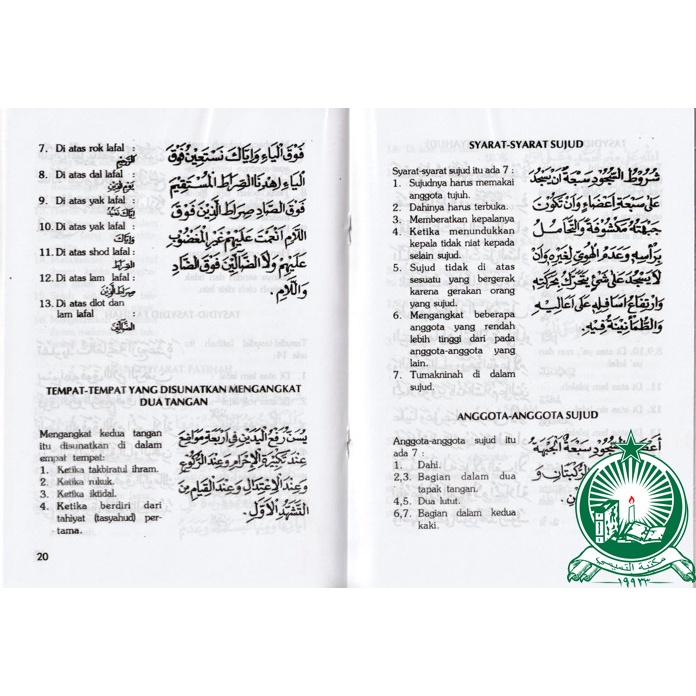 7. Di atas rok lafal :
الرَّحِيْمِ
8. Di atas dal lafal :
يَوْمِ الدِّيْنِ
9. Di atas yak lafal :
إِيَّاكَ نَعْبُدُ
10. Di atas yak lafal :
وَإِيَّاكَ
11. Di atas shod lafal :
الصِّرَاطَ
12. Di atas lam lafal :
صِرَاطَ الَّذِيْنَ
13. Di atas dlot dan
lam lafal :
الضَّالِّيْنَ
فَوْقَ الْيَاءِ وَإِيَّاكَ نَسْتَعِيْنُ فَوْقَ
الْيَاءِ اِهْدِنَا الصِّرَاطَ الْمُسْتَقِيْمَ
فَوْقَ الصَّادِ صِرَاطَ الَّذِيْنَ فَوْقَ
اللَّامِ اَنْعَمْتَ عَلَيْهِمْ غَيْرِ الْمَغْضُوْبِ
عَلَيْهِمْ وَلَا الضَّالِّيْنَ فَوْقَ الضَّادِ
وَاللَّامِ.
TEMPAT-TEMPAT YANG DISUNATKAN MENGANGKAT
DUA TANGAN
Mengangkat kedua tangan
itu disunatkan di dalam
empat tempat:
1. Ketika takbiratul ihram.
2. Ketika rukuk.
3. Ketika iktidal.
4. Ketika berdiri dari
tahiyat (tasyahud) per-
tama.
يُسَنُّ رَفْعُ الْيَدَيْنِ فِى اَرْبَعَةِ مَوَاضِعَ
عِنْدَ تَكْبِيْرَةِ الْإِحْرَامِ وَعِنْدَ الرُّكُوْعِ
وَعِنْدَ الْإِعْتِدَالِ وَعِنْدَ الْقِيَامِ مِنَ
التَّشَهُّدِ الْاَوَّلِ.
20
SYARAT-SYARAT SUJUD
Syarat-syarat sujud itu ada 7 :
1. Sujudnya harus memakai
anggota tujuh.
2. Dahinya harus terbuka.
3. Memberatkan kepalanya
4. Ketika menundukkan
kepala tidak niat kepada
selain sujud.
5. Sujud tidak di atas
sesuatu yang bergerak
karena gerakan orang
yang sujud.
6. Mengangkat beberapa
anggota yang rendah
lebih tinggi dari pada
anggota-anggota yang
lain.
7. Tumakninah di dalam
sujud.
شُرُوْطُ السُّجُوْدِ سَبْعَةٌ اَنْ يَسْجُدَ
عَلَى سَبْعَةِ اَعْضَاءٍ وَاَنْ تَكُوْنَ
جَبْهَتُهُ مَكْشُوْفَةً وَالتَّحَامُلُ
بِرَأْسِهِ وَعَدَمُ الْهُوِيِّ لِغَيْرِهِ وَاَنْ
لَا يَسْجُدَ عَلَى شَيْءٍ يَتَحَرَّكُ بِحَرَكَتِهِ
وَارْتِفَاعُ اَسَافِلِهِ عَلَى اَعَالِيْهِ
وَالطُّمَأْنِيْنَةُ فِيْهِ.
ANGGOTA-ANGGOTA SUJUD
Anggota-anggota sujud itu
ada 7 :
1. Dahi.
2,3. Bagian dalam dua
tapak tangan.
4,5. Dua lutut.
6,7. Bagian dalam kedua
kaki.
السُّجُوْدِ سَبْعَةٌ الْجَبْهَةُ
الرُّكْبَتَانِ وَ
مكتبة التميمي
١٩٩٢٣